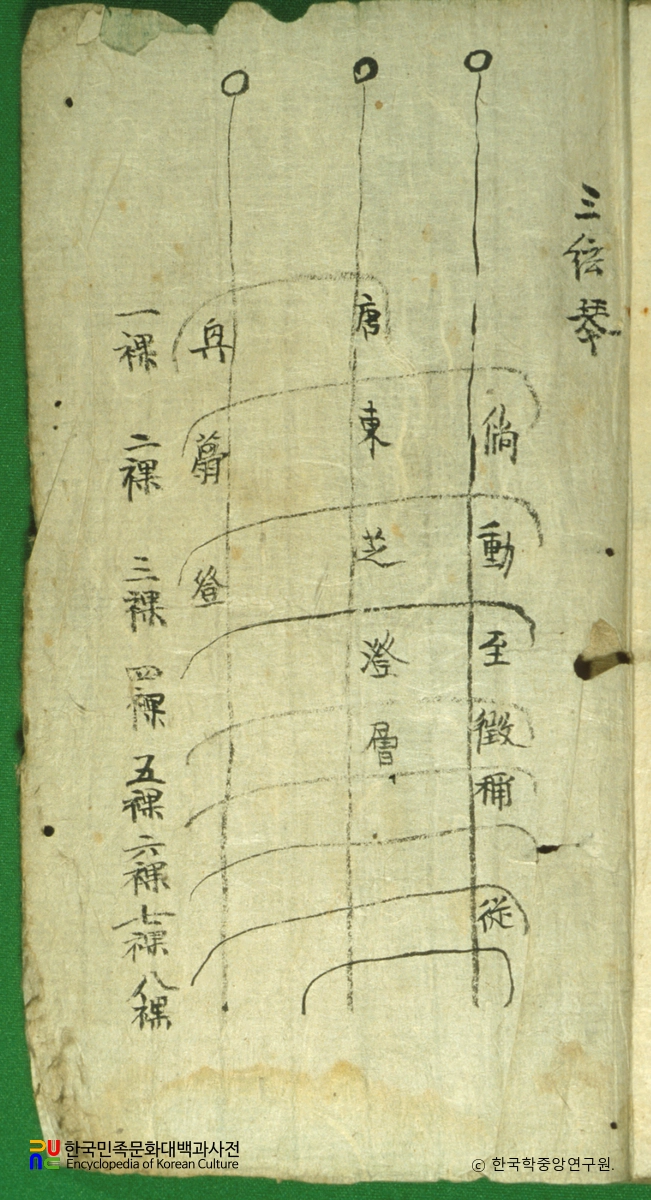 三絃琴
倘
動
至
徵
從
唐
東
芝
澄
層
登
一裸
二裸
三裸
四裸
五裸
六裸
七裸
八裸
한국민족문화대백과사전
Encyclopedia of Korean Culture
ⓒ 한국학중앙연구원.